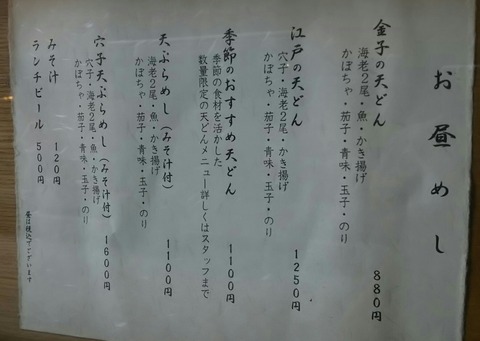 お昼めし
金子の天どん 880円
海老2尾・魚・かき揚げ
かぼちゃ・茄子・青味・のり
江戸の天どん 1250円
穴子・海老2尾・かき揚げ
かぼちゃ・茄子・青味・玉子・のり
季節のおすすめ天どん 1100円
季節の食材を活かした
数量限定の天どんメニュー詳しくはスタッフまで
天ぷらめし(みそ汁付) 1100円
海老2尾・魚・かき揚げ
かぼちゃ・茄子・青味・玉子・のり
穴子天ぷらめし(みそ汁付) 1600円
穴子・海老2尾・魚・かき揚げ
かぼちゃ・茄子・青味・玉子・のり
みそ汁 120円
ランチビール 500円
昼は税込でございます